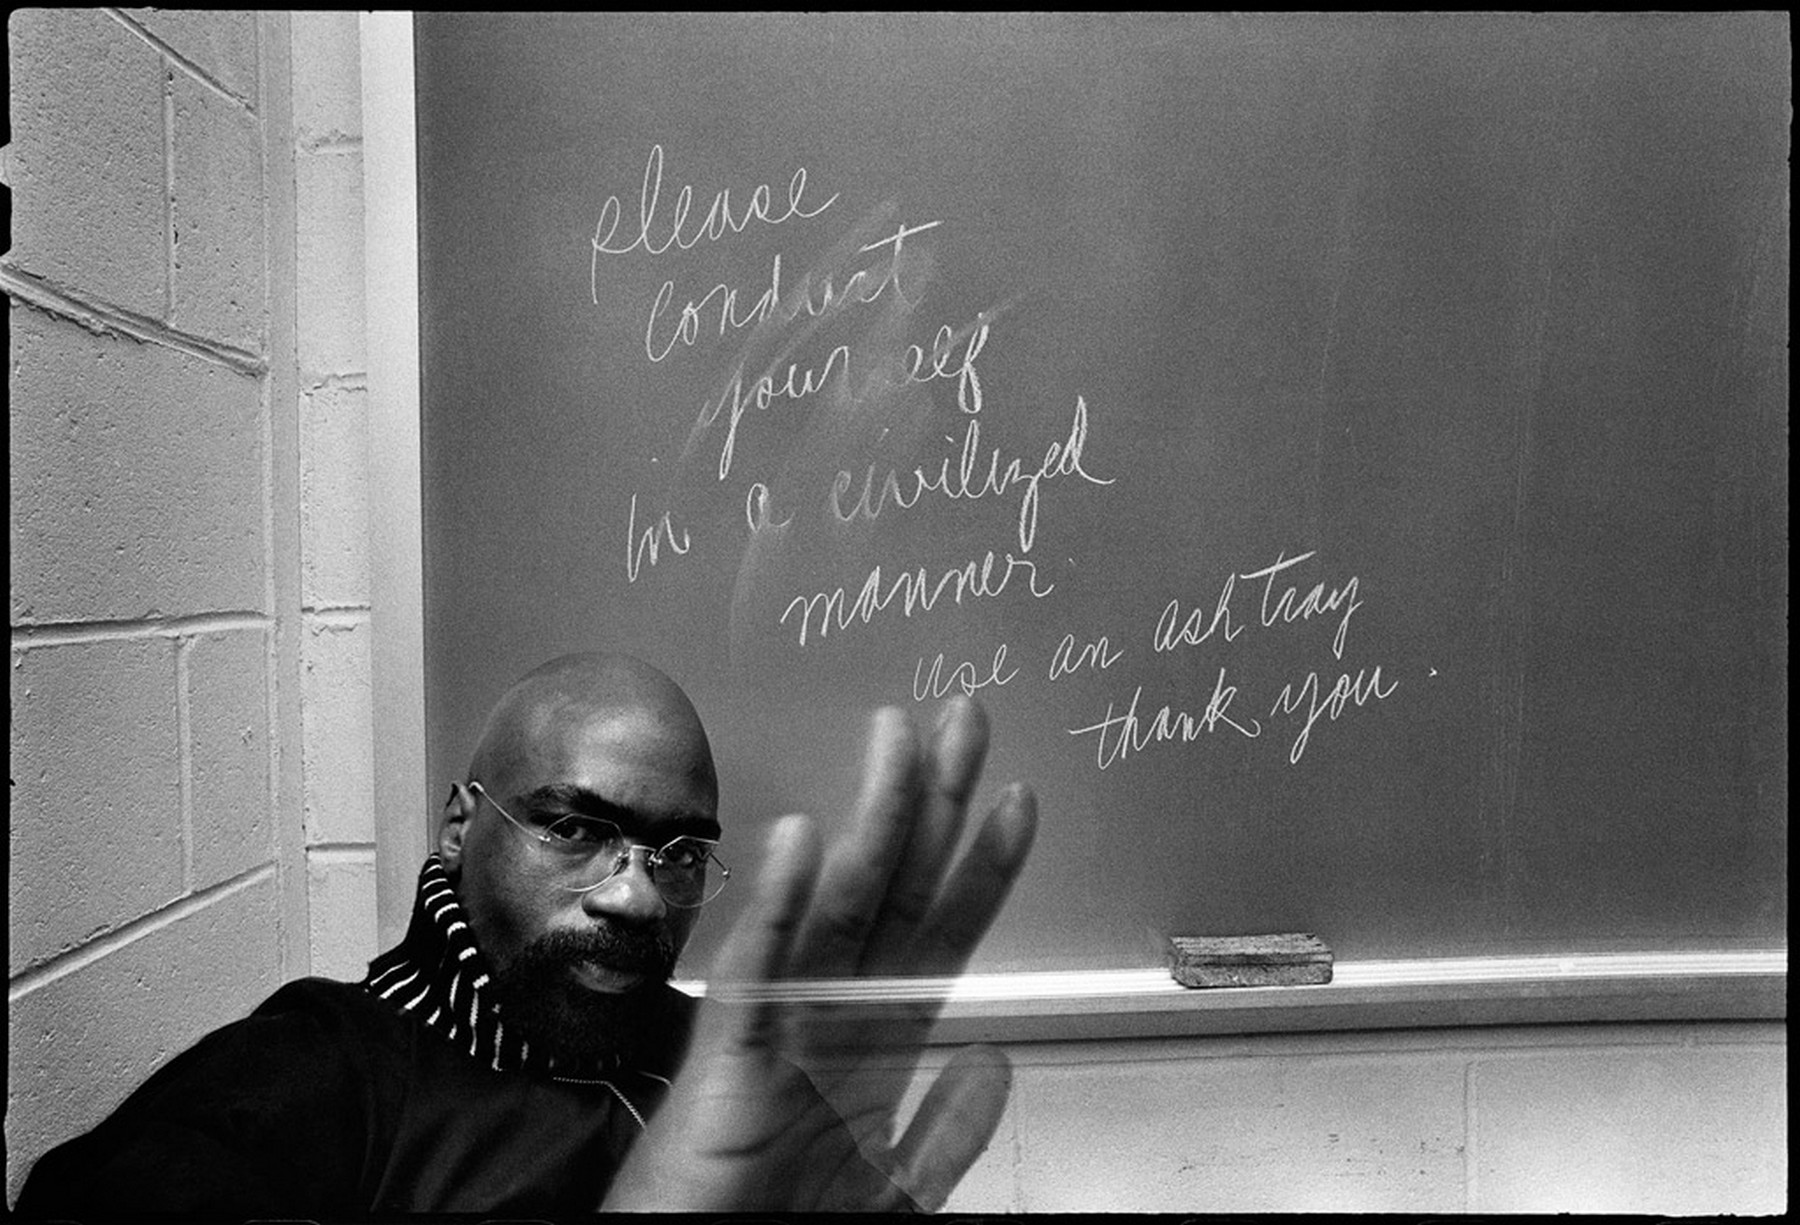 please
conduct
yourself
in a civilized
manner.
use an ash tray
thank you.